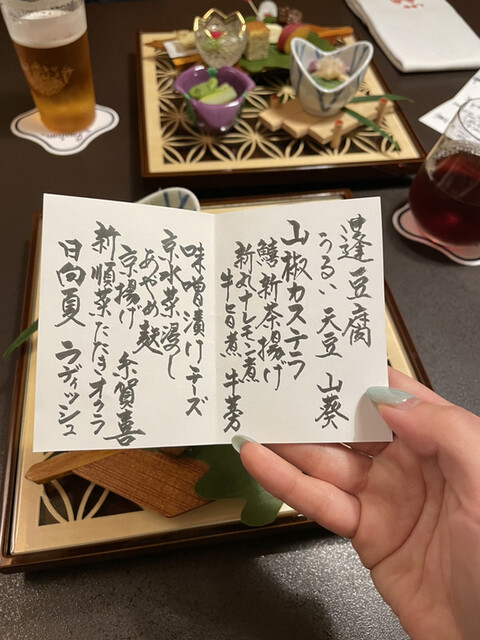 蓬豆腐
うるい 天豆 山葵
山椒カステラ
鱚新茶揚げ
新丸十レモン煮
牛旨煮 牛蒡
味噌漬けチーズ
京水菜浸し
あやめ麩
京揚げ 糸賀喜
新順菜たたきオクラ
日向夏 ラディッシュ